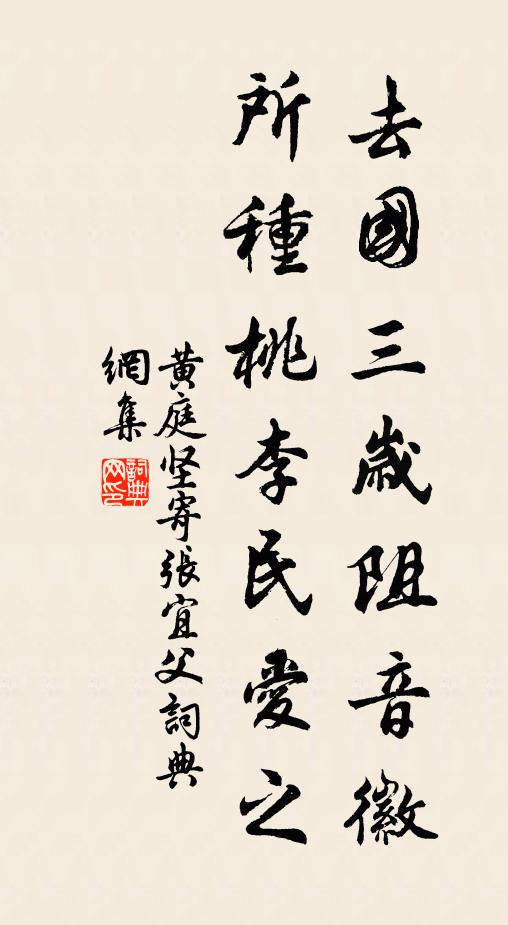 去國三歲阻音徽
所種桃李民愛之
黃庭坚寄張宜父詞典
網集
詞典
网印